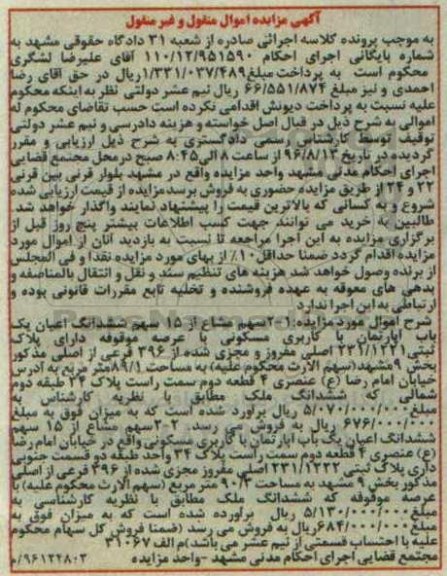 آگهی مزایده اموال منقول و غیر منقول
به موجب پرونده کلاسه اجرائی صادره از شعبه ۳۱ دادگاه حقوقی مشهد به
شماره بایگانی اجرای احکام ۱۱۰/۱۲/۹۵۱۵۹۰ آقای علیرضا لشگری
محکوم است به پرداخت مبلغ ۱/۳۳۱/۰۳۷/۴۸۹ ریال در حق آقای رضا
احمدی و نیز مبلغ ۶۶/۵۵۱/۸۷۴ ریال نیم عشر دولتی نظر به اینکه محکوم
علیه نسبت به پرداخت دیونش اقدامی نکرده است حسب تقاضای محکوم له
اموالی به شرح ذیل در قبال اصل خواسته و هزینه دادرسی و نیم عشر دولتی
توقیف توسط کارشناس رسمی دادگستری به شرح ذیل ارزیابی و مقرر
گردیده در تاریخ ۹۶/۸/۱۳ از ساعت ۸ الی ۸:۴۵ صبح در محل مجتمع قضایی
اجرای احکام مدنی مشهد واحد مزایده واقع در مشهد بلوار قرنی بین قرنی
۲۲ و ۲۴ از طریق مزایده حضوری به فروش برسد مزایده از قیمت ارزیابی شده
شروع و به کسانی که بالاترین قیمت را پیشنهاد نمایند واگذار خواهد شد.
طالبین به خرید می توانند جهت کسب اطلاعات بیشتر پنج روز قبل از
برگزاری مزایده به این اجرا مراجعه تا نسبت به بازدید آنان از اموال مورد
مزایده اقدام گردد ضمنا حداقل ۱۰٪ از بهای مورد مزایده نقدا و فی المجلس
از برنده وصول خواهد شد هزینه های تنظیم سند و نقل و انتقال بالمناصفه و
بدهی های معوقه به عهده فروشنده و تخلیه تابع مقررات قانونی بوده و
ارتباطی به این اجرا ندارد
شرح اموال مورد مزایده: ۱-۲سهم مشاع از ۱۵ سهم ششدانگ اعیان یک
باب آپارتمان با کاربری مسکونی با عرصه موقوفه دارای پلاک
ثبتی ۲۳۱/۱۲۲۱ اصلی مفروز و مجزی شده از ۳۹۶ فرعی از اصلی مذکور
بخش ۹ مشهد (سهم الارث محکوم علیه) به مساحت ۸۹/۱ متر مربع به آدرس
خیابان امام رضا (ع) عنصری ۴ قطعه دوم سمت راست پلاک ۳۴ طبقه دوم
شمالی که ششدانگ ملک مطابق با نظریه کارشناس به
مبلغ ۵/۰۷۰/۰۰۰/۰۰۰ ریال برآورد شده است که به میزان فوق به مبلغ
۶۷۶/۰۰۰/۰۰۰ ریال به فروش می رسد. ۲-۲سهم مشاع از ۱۵ سهم
ششدانگ اعیان یک باب آپارتمان با کاربری مسکونی واقع در خیابان امام رضا
(ع) عنصری ۴ قطعه دوم سمت راست پلاک ۳۴ واحد طبقه دو قسمت جنوبی
داری پلاک ثبتی ۲۳۱/۱۲۲۲ اصلی مفروز مجزی شده از ۳۹۶ فرعی از اصلی
مذکور بخش ۹ مشهد به مساحت ۹۰/۳ متر مربع (سهم الارث محکوم علیه) با
عرصه موقوفه که ششدانگ ملک مطابق با نظریه کارشناسی به
مبلغ ۵/۱۳۰/۰۰۰/۰۰۰ ریال برآورده شده است که به میزان فوق به
مبلغ ۶۸۴/۰۰۰/۰۰۰ ریال به فروش می رسد (ضمنا فروش کل سهام محکوم
علیه با احتساب قسمتی از نیم عشر می باشد) م الف ۳۱۰۶۷
مجتمع قضایی اجرای احکام مدنی مشهد -واحد مزایده ۹۶۱۲۲۸۰۳/م